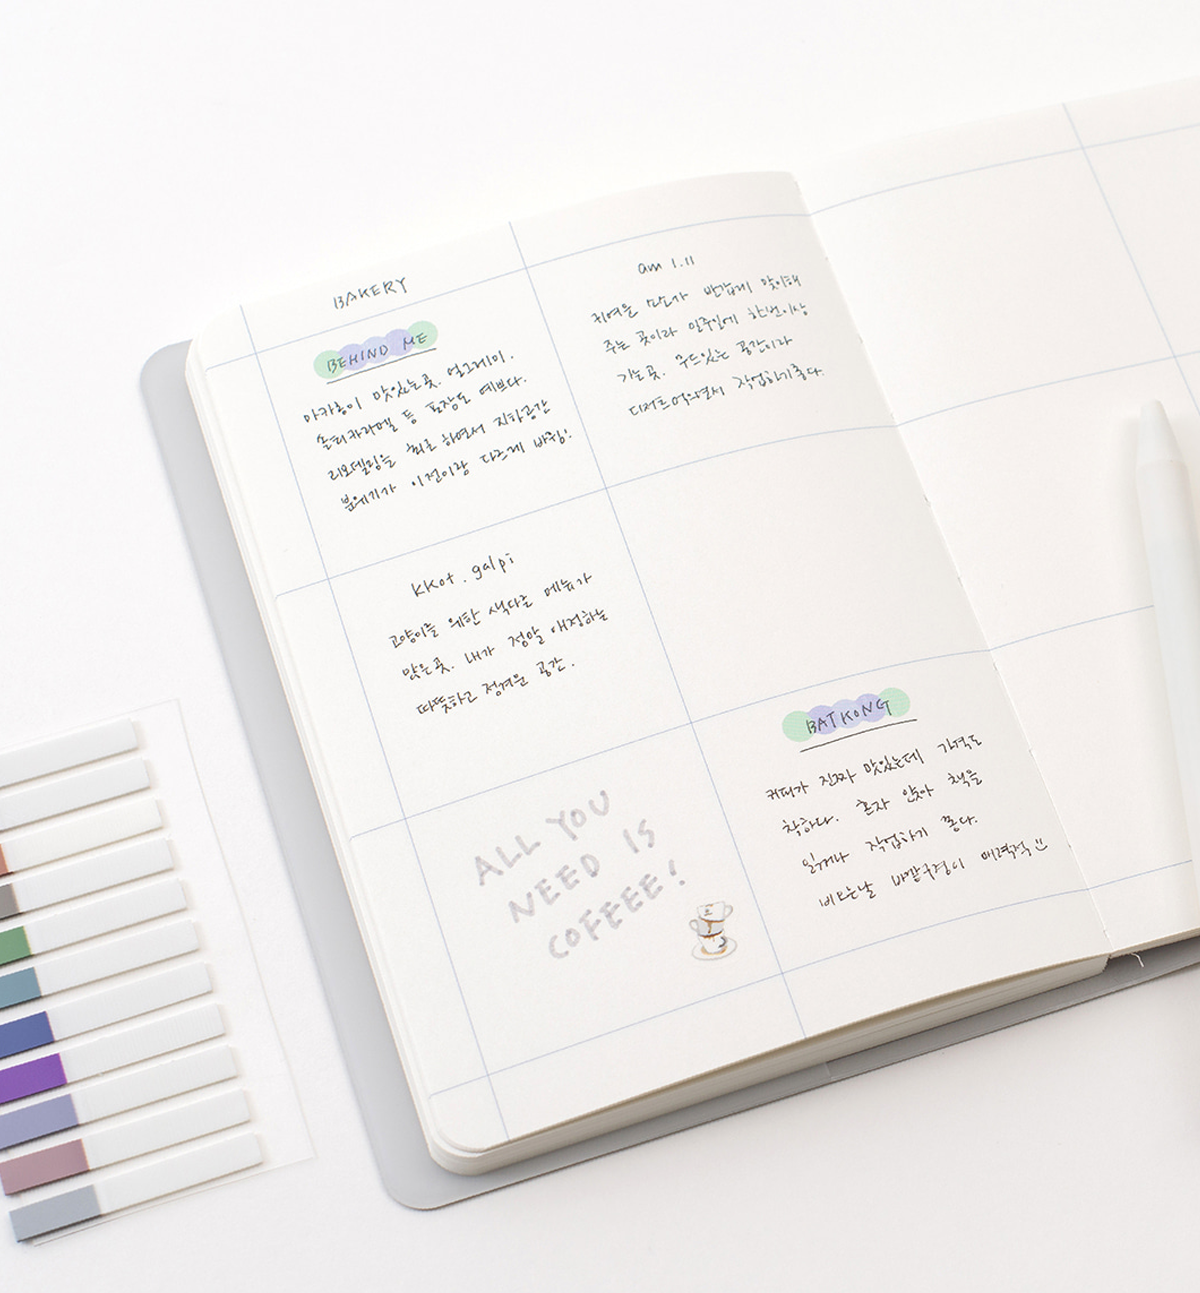 BAKERY
BEHIND ME
마카롱이 맛있는곳. 얼그레이.
솔티카라멜 등 포장도 예쁘다.
리모델링을 최근 하면서 지하공간
분위기가 이전이랑 다르게 바뀜!
am 1.11
귀여운 만나가 반갑게 맞이해
주는 곳이라 일주일에 한번이상
가는곳. 무드있는 공간이라
디저트먹으면서 작업하기좋다.
kkot. galpi
고양이를 위한 색다른 메뉴가
많은곳. 내가 정말 애정하는
따뜻하고 정겨운 공간.
ALL YOU
NEED IS
COFFEE!
BATKONG
커피가 진짜 맛있는데 가격도
착하다. 혼자 앉아 책을
읽거나 작업하기 좋다.
비오는날 바깥구경이 매력적